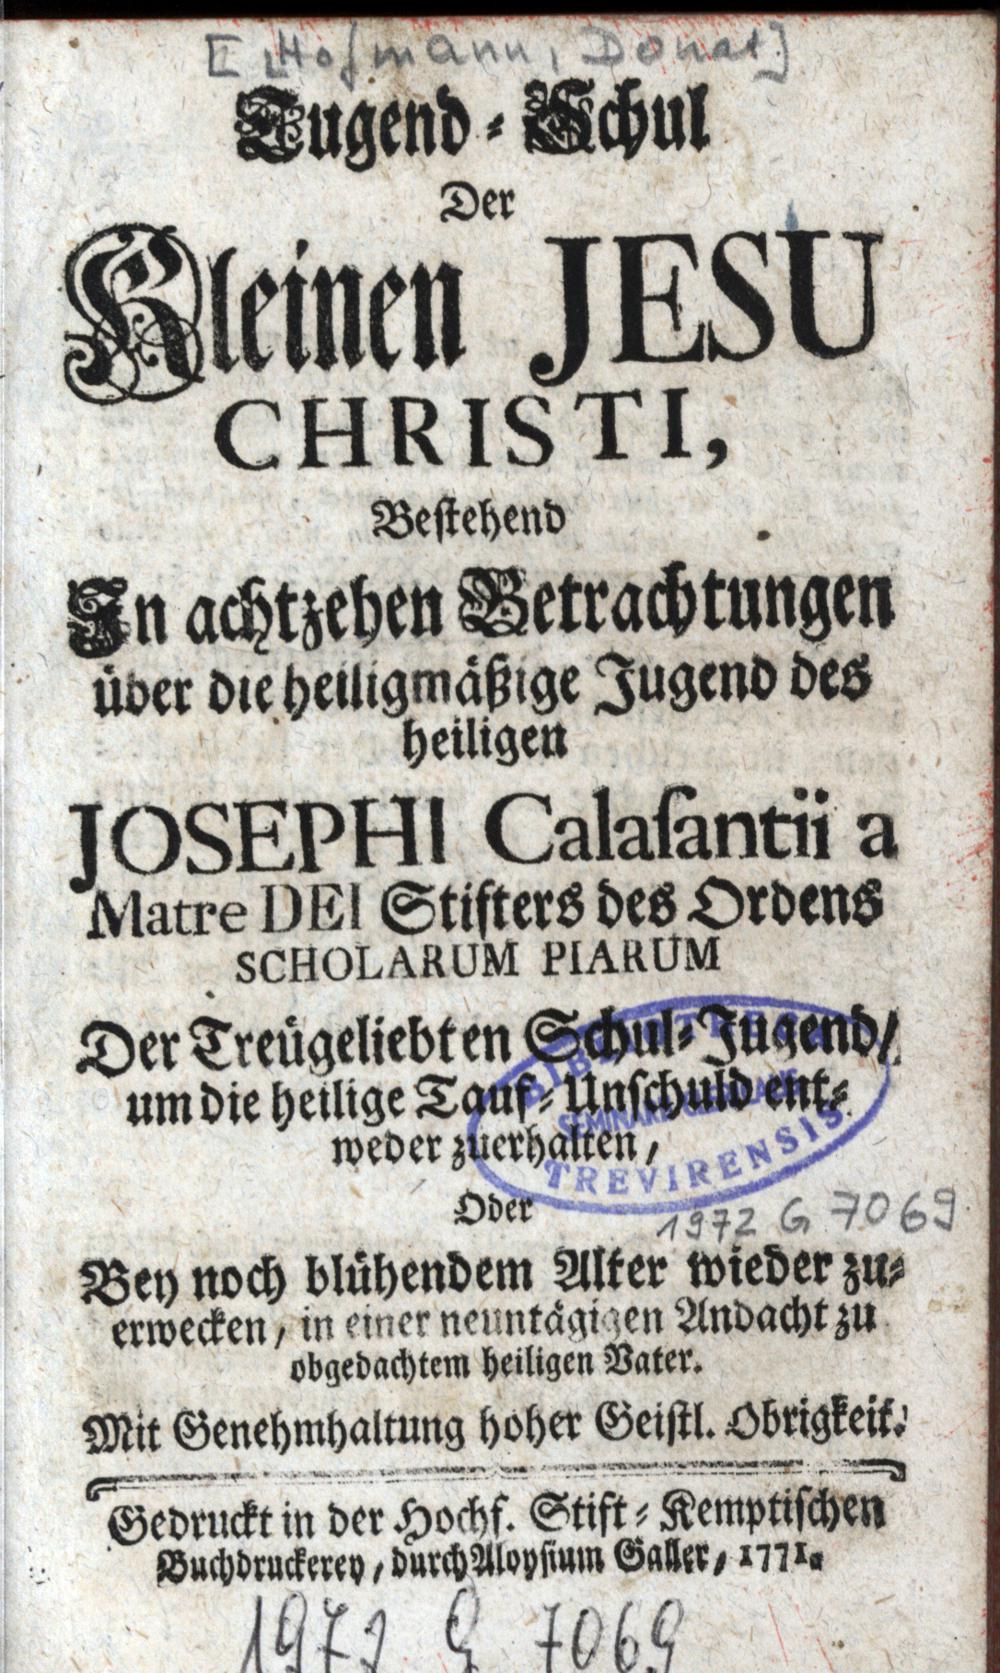 [Hofmann, Donat]
Tugend-Schul
Der
Kleinen JESU
CHRISTI,
Bestehend
In achtzehen Betrachtungen
über die heiligmäßige Jugend des
heiligen
JOSEPHI Calasantii a
Matre DEI Stifters des Ordens
SCHOLARUM PIARUM
Der Treügeliebten Schul-Jugend/
um die heilige Tauf-Unschuld ent-
weder zuerhalten,
Oder
Bey noch blühendem Alter wieder zu-
erwecken, in einer neuntägigen Andacht zu
obgedachtem heiligen Vater.
Mit Genehmhaltung hoher Geistl. Obrigkeit.
Gedruckt in der Hochf. Stift-Kemptischen
Buchdruckerey, durch Aloysium Galler, 1771.
BIBLIOTHECA
SEMINARII
TREVIRENSIS
1972 G 7069
1972 G 7069